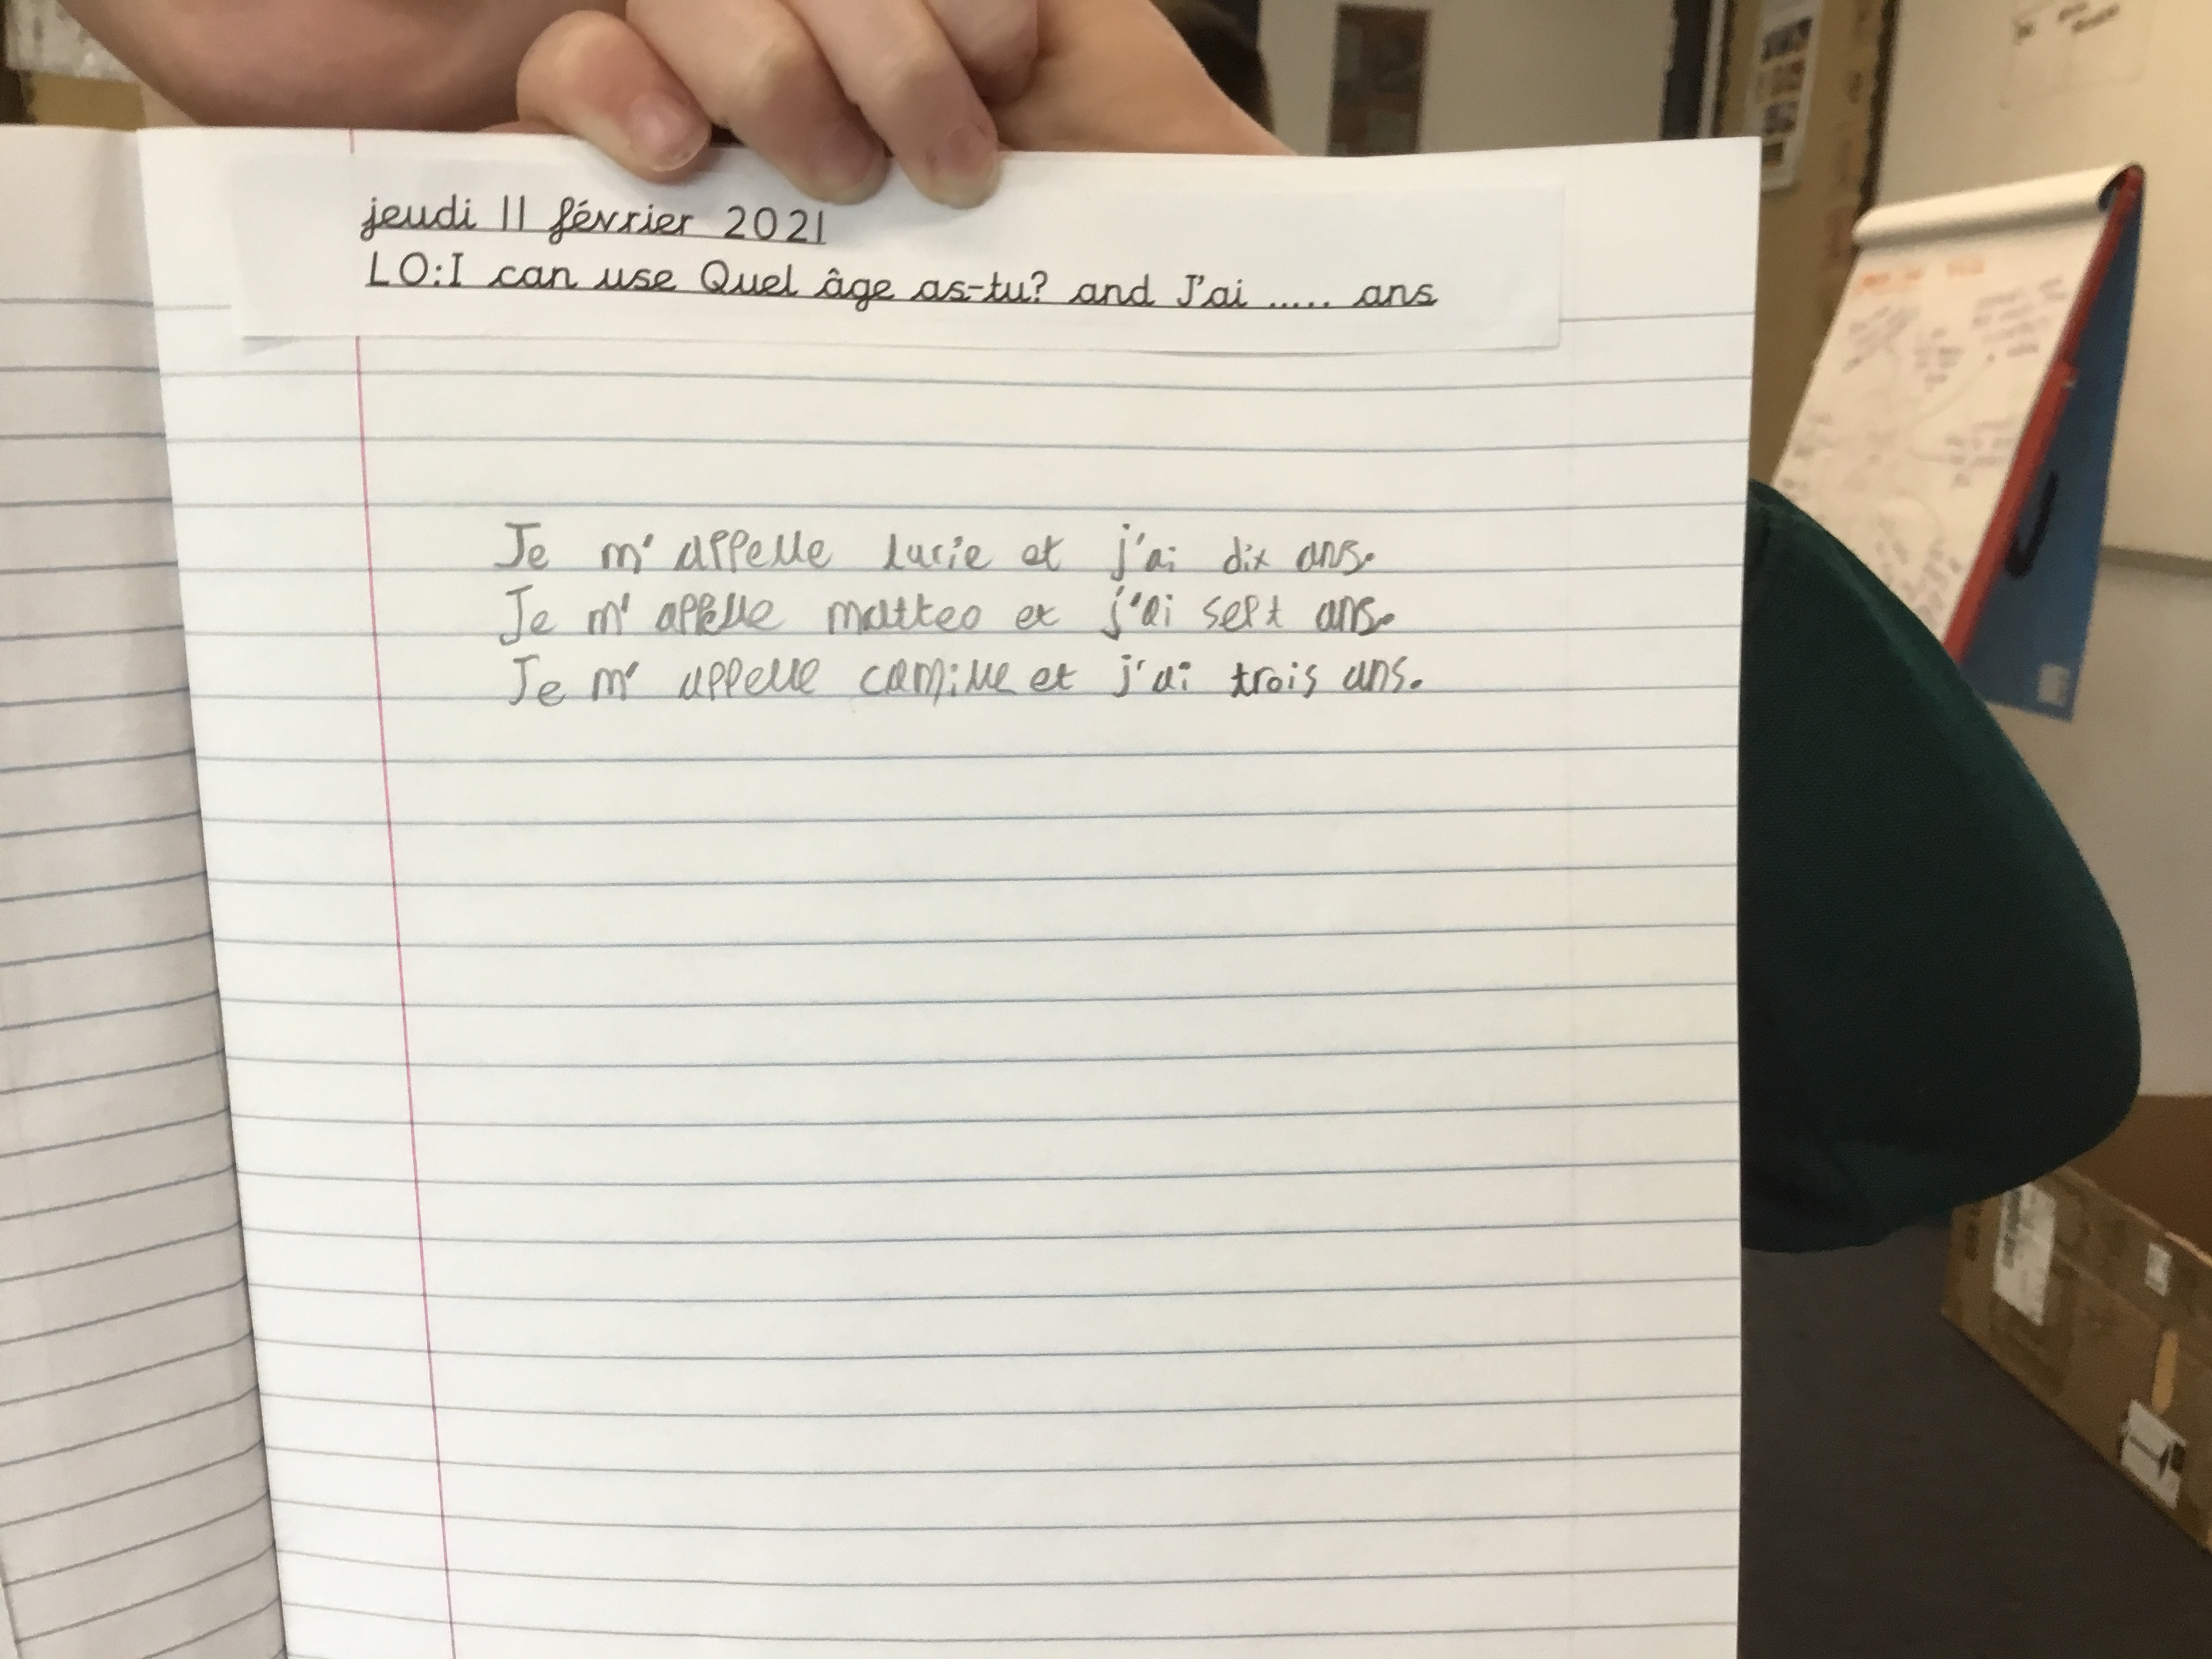 jeudi 11 février 2021
LO:I can use Quel âge as-tu? and J'ai ..... ans
Je m' appelle lucie et j'ai dix ans.
Je m' appelle matteo et j'ai sept ans.
Je m' appelle camille et j'ai trois ans.